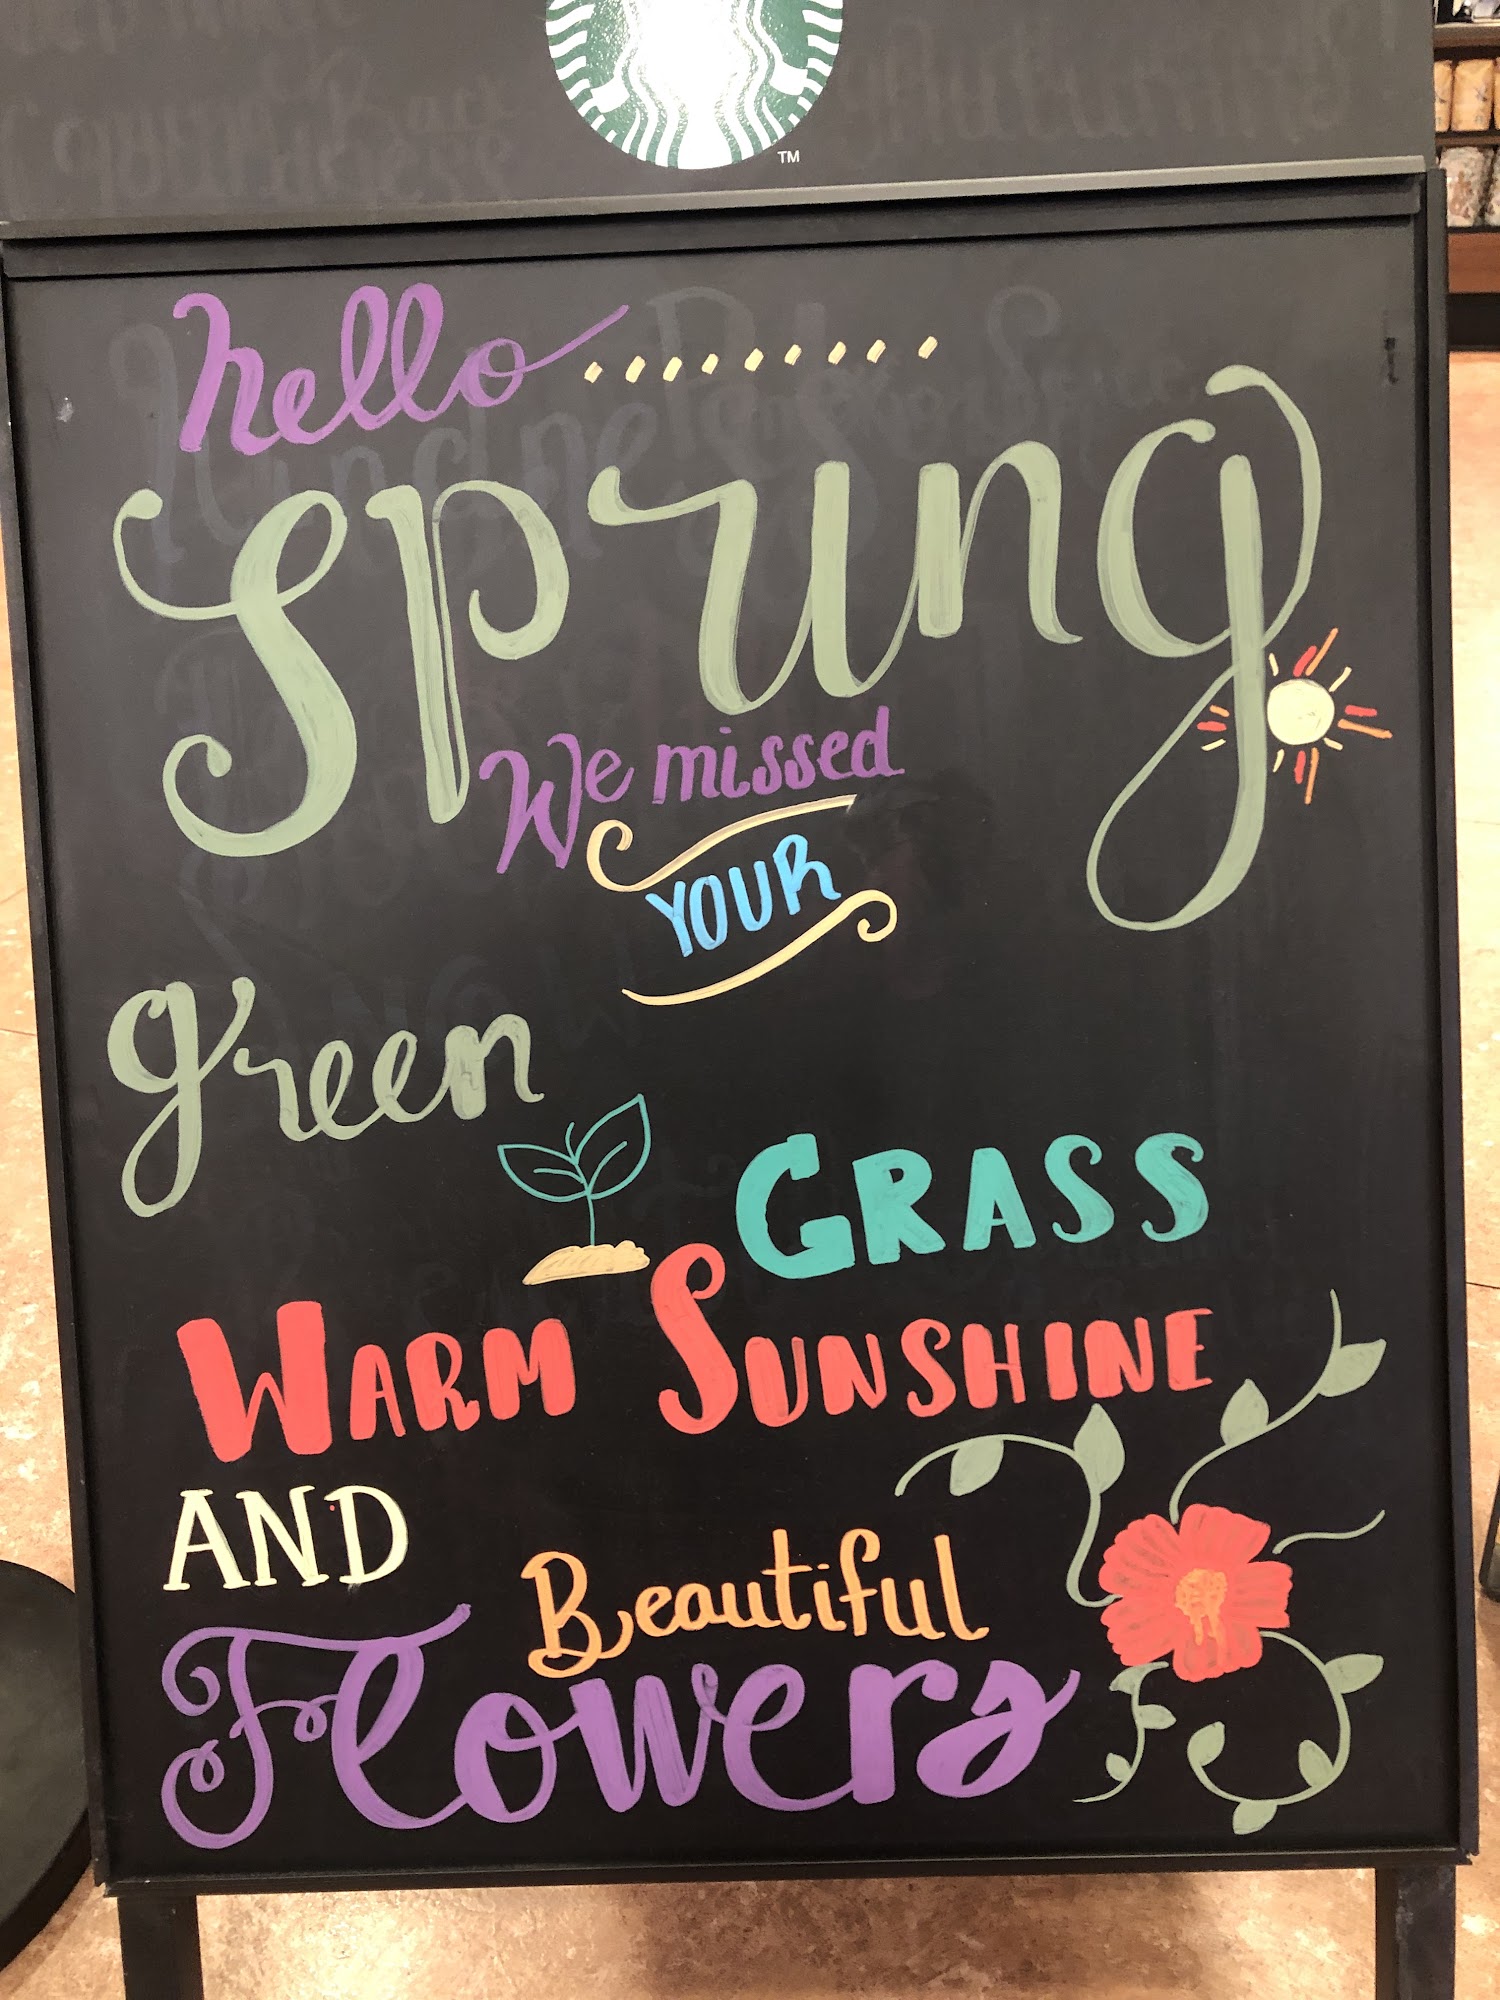 TM
hello .........
Spring
We missed
YOUR
green
GRASS
WARM SUNSHINE
AND
Beautiful
Flowers